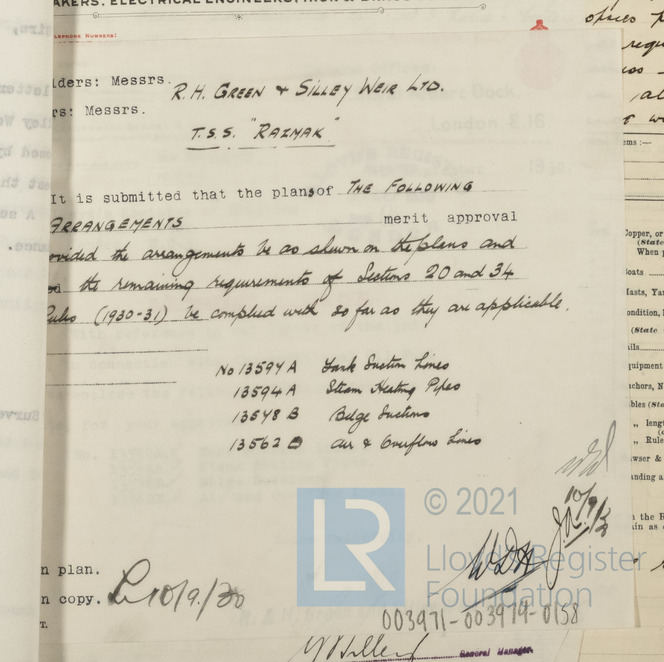 AKERS, ELECTRICAL ENGINEERS,
LEPHONE NUMBERS:
lders: Messrs. R.H. GREEN & SILLEY WEIR LTD.
rs: Messrs.
T.S.S. "RAZMAK"
London E 16
It is submitted that the plans of THE FOLLOWING
ARRANGEMENTS merit approval
ovided the arrangements be as shewn on the plans and
the remaining requirements of Sections 20 and 34
Rules (1930-31) be complied with so far as they are applicable.
No 13597A Tank Suction Lines
13594A Steam Heating Pipes
13548 B Bilge Suctions
13562 Air & Overflow Lines
n plan.
n copy. 10/9/30
T.
10/9/30
LR
© 2021
Lloyd's Register
Foundation
003971-003979-0158
General Manager.
opper, or
(State
When p
oats
asts, Yar
ondition,
(State
ils
quipment
nchors, N
bles (Sta
„ length
„ Rule
wser &
anding a
n the R
ain as